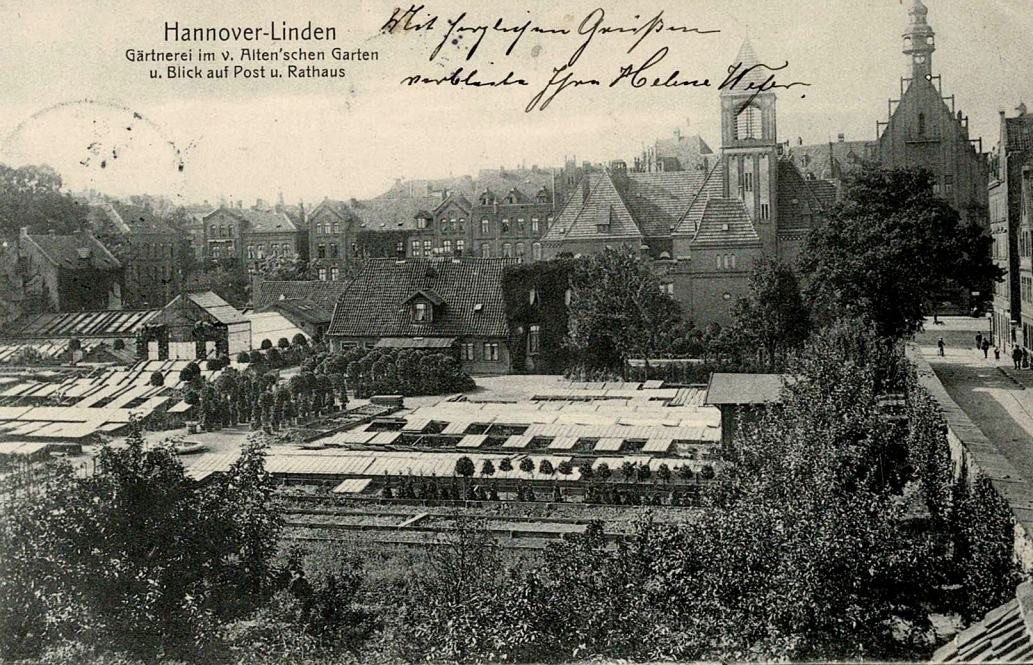 Hannover-Linden
Gärtnerei im v. Alten'schen Garten
u. Blick auf Post u. Rathaus
Mit herzlichen Grüßen
verbleibe Ihre Helene